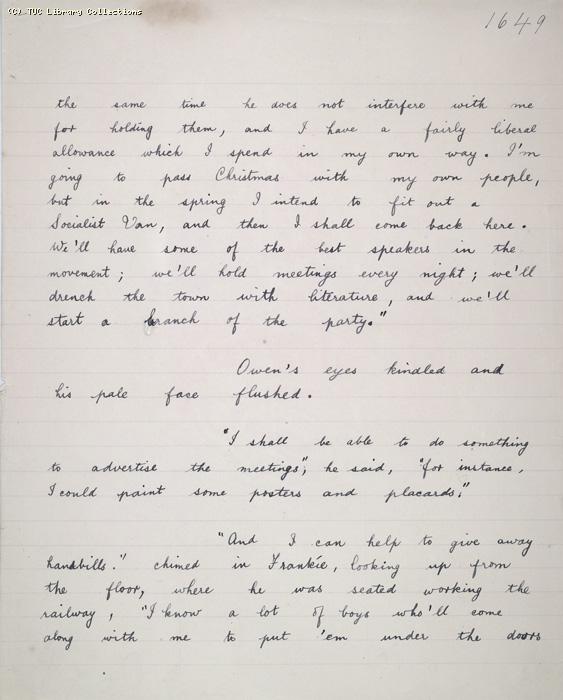 (C) TUC Library Collections
1649
the same time he does not interfere with me
for holding them, and I have a fairly liberal
allowance which I spend in my own way. I'm
going to pass Christmas with my own people,
but in the spring I intend to fit out a
Socialist Van, and then I shall come back here.
We'll have some of the best speakers in the
movement; we'll hold meetings every night; we'll
drench the town with literature, and we'll
start a branch of the party."
Owen's eyes kindled and
his pale face flushed.
"I shall be able to do something
to advertise the meetings", he said, "for instance,
I could paint some posters and placards."
"And I can help to give away
handbills." chimed in Frankie, looking up from
the floor, where he was seated working the
railway, "I know a lot of boys who'll come
along with me to put 'em under the doors